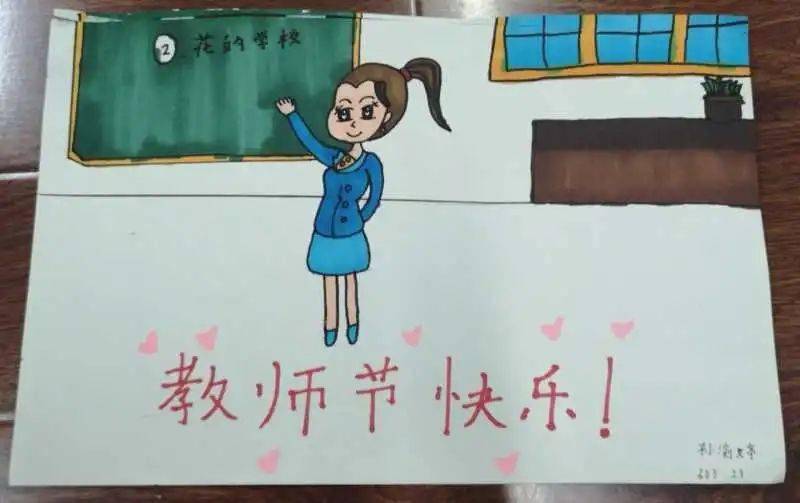 2 花的学校
教师节快乐!